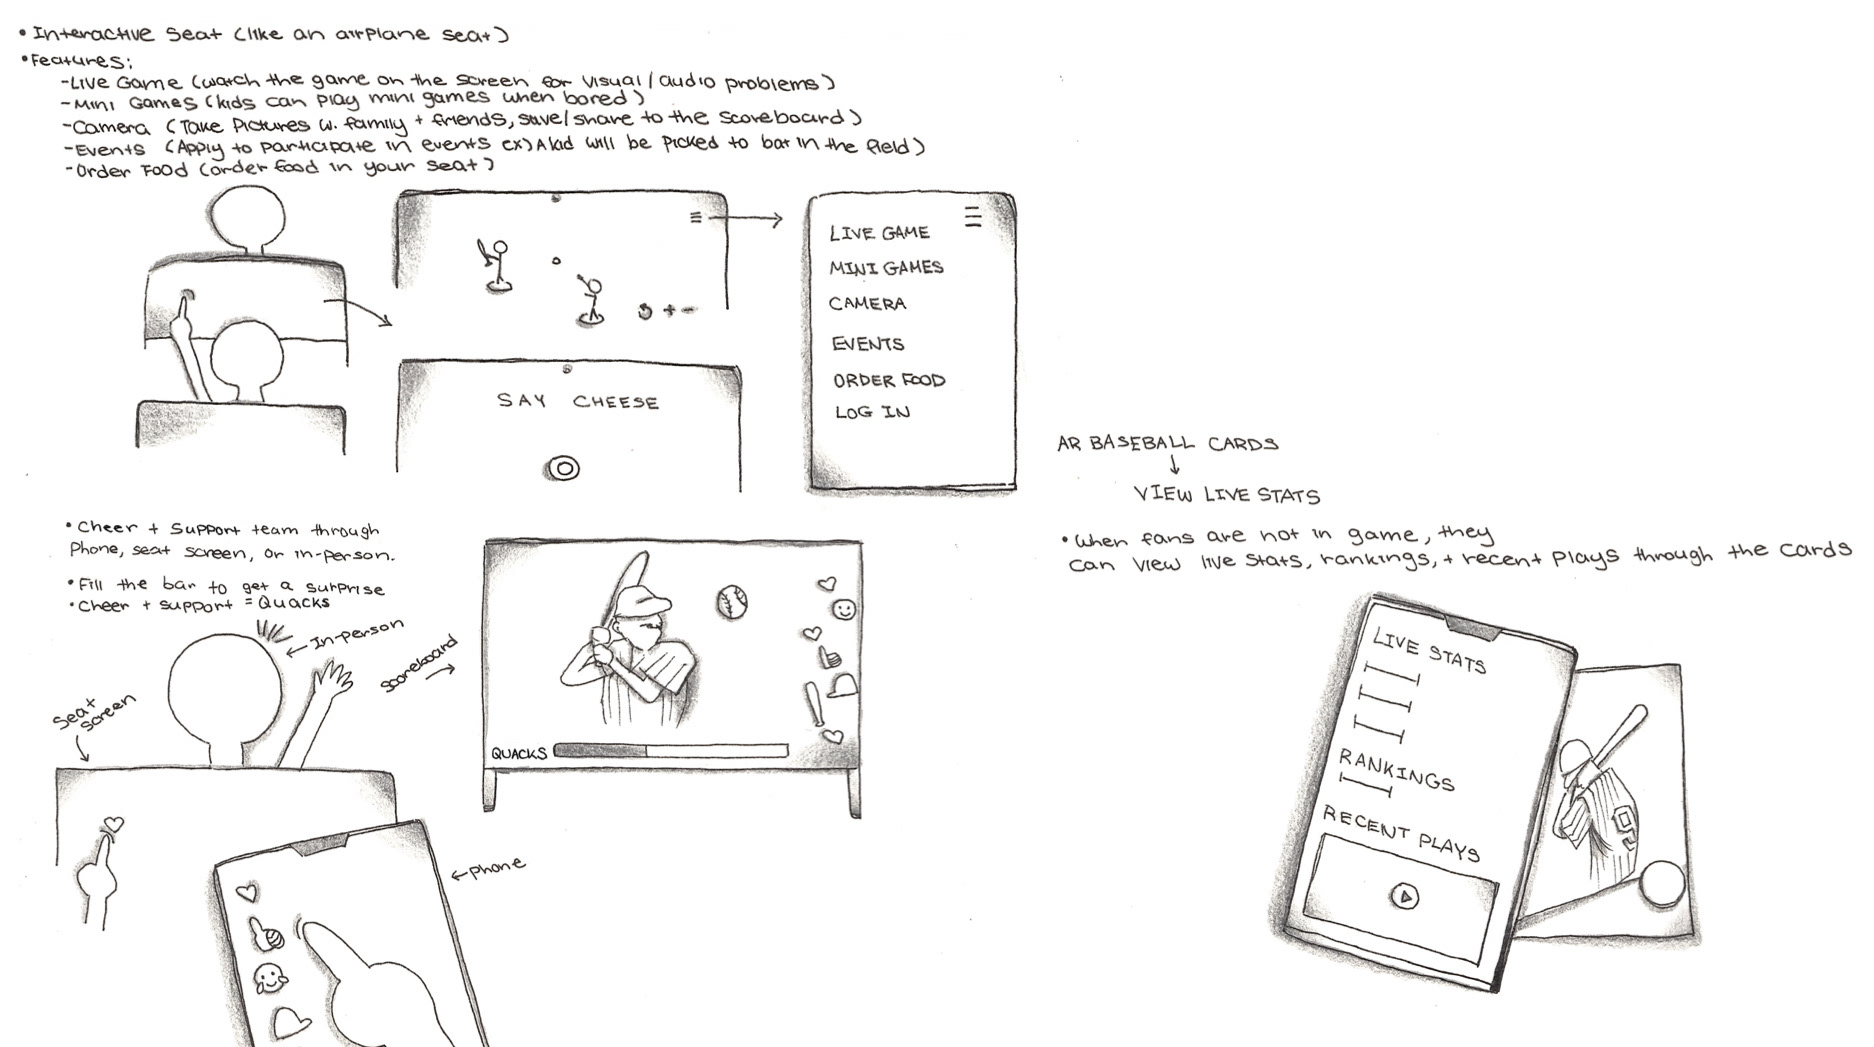 • Interactive Seat (like an airplane seat)
• Features:
-Live Game (watch the game on the screen for visual/audio problems)
-Mini Games (kids can play mini games when bored)
-Camera (Take Pictures w. family + friends, save/share to the scoreboard)
-Events (Apply to participate in events ex) A kid will be picked to bat in the field)
-Order Food (order food in your seat)
LIVE GAME
MINI GAMES
CAMERA
EVENTS
ORDER FOOD
LOG IN
SAY CHEESE
• Cheer + Support team through
Phone, seat screen, or in-person.
• Fill the bar to get a surprise
• Cheer + support = Quacks
In-person
Scoreboard
Seat
screen
Phone
QUACKS
AR BASEBALL CARDS
VIEW LIVE STATS
• When fans are not in game, they
can view live stats, rankings, + recent plays through the cards
LIVE STATS
RANKINGS
RECENT PLAYS